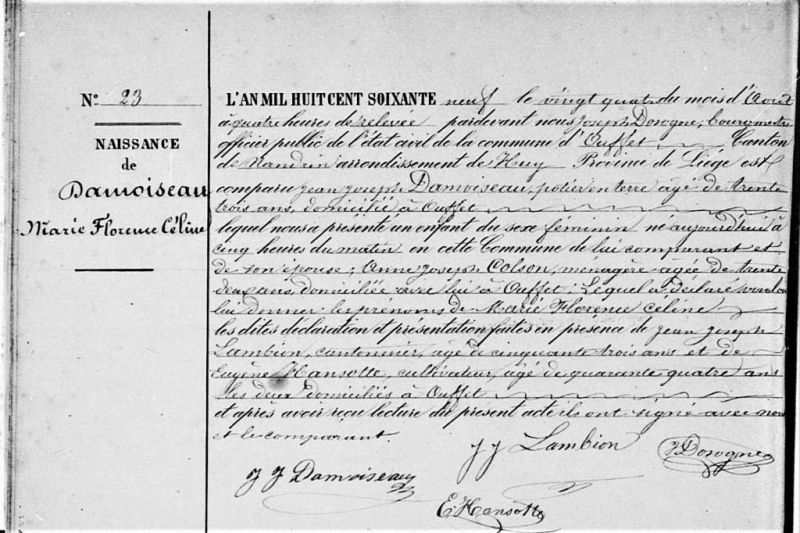 N° 23
NAISSANCE
de
Damoiseau
Marie Florence Céline
L'AN MIL HUIT CENT SOIXANTE neuf le vingt quatre du mois d'Août
à quatre heures de relevée pardevant nous Joseph Dosogne, Bourgmestre
officier public de l'état civil de la commune d'Ouffet, Canton
de Nandrin arrondissement de Huy Province de Liége est
comparu jean joseph Damoiseau, potier en terre âgé de trente
trois ans, domicilié à Ouffet
lequel nous a présenté un enfant du sexe féminin né aujourd'hui à
cinq heures du matin en cette Commune de lui comparant et
de son épouse; Anne Joseph Colson, ménagère âgée de trente
deux ans, domiciliée avec lui à Ouffet: Lequel a déclaré vouloir
lui donner les prénoms de Marie Florence Céline
les dites déclaration et présentation faites en présence de jean joseph
Lambion, cantonnier, âgé de cinquante trois ans et de
Eugène Hansotte, cultivateur, âgé de quarante quatre ans
les deux domiciliés à Ouffet
et après avoir reçu lecture du présent acte ils ont signé avec nous
et le comparant.
J J Lambion
J Dosogne
J J Damoiseau
E. Hansotte